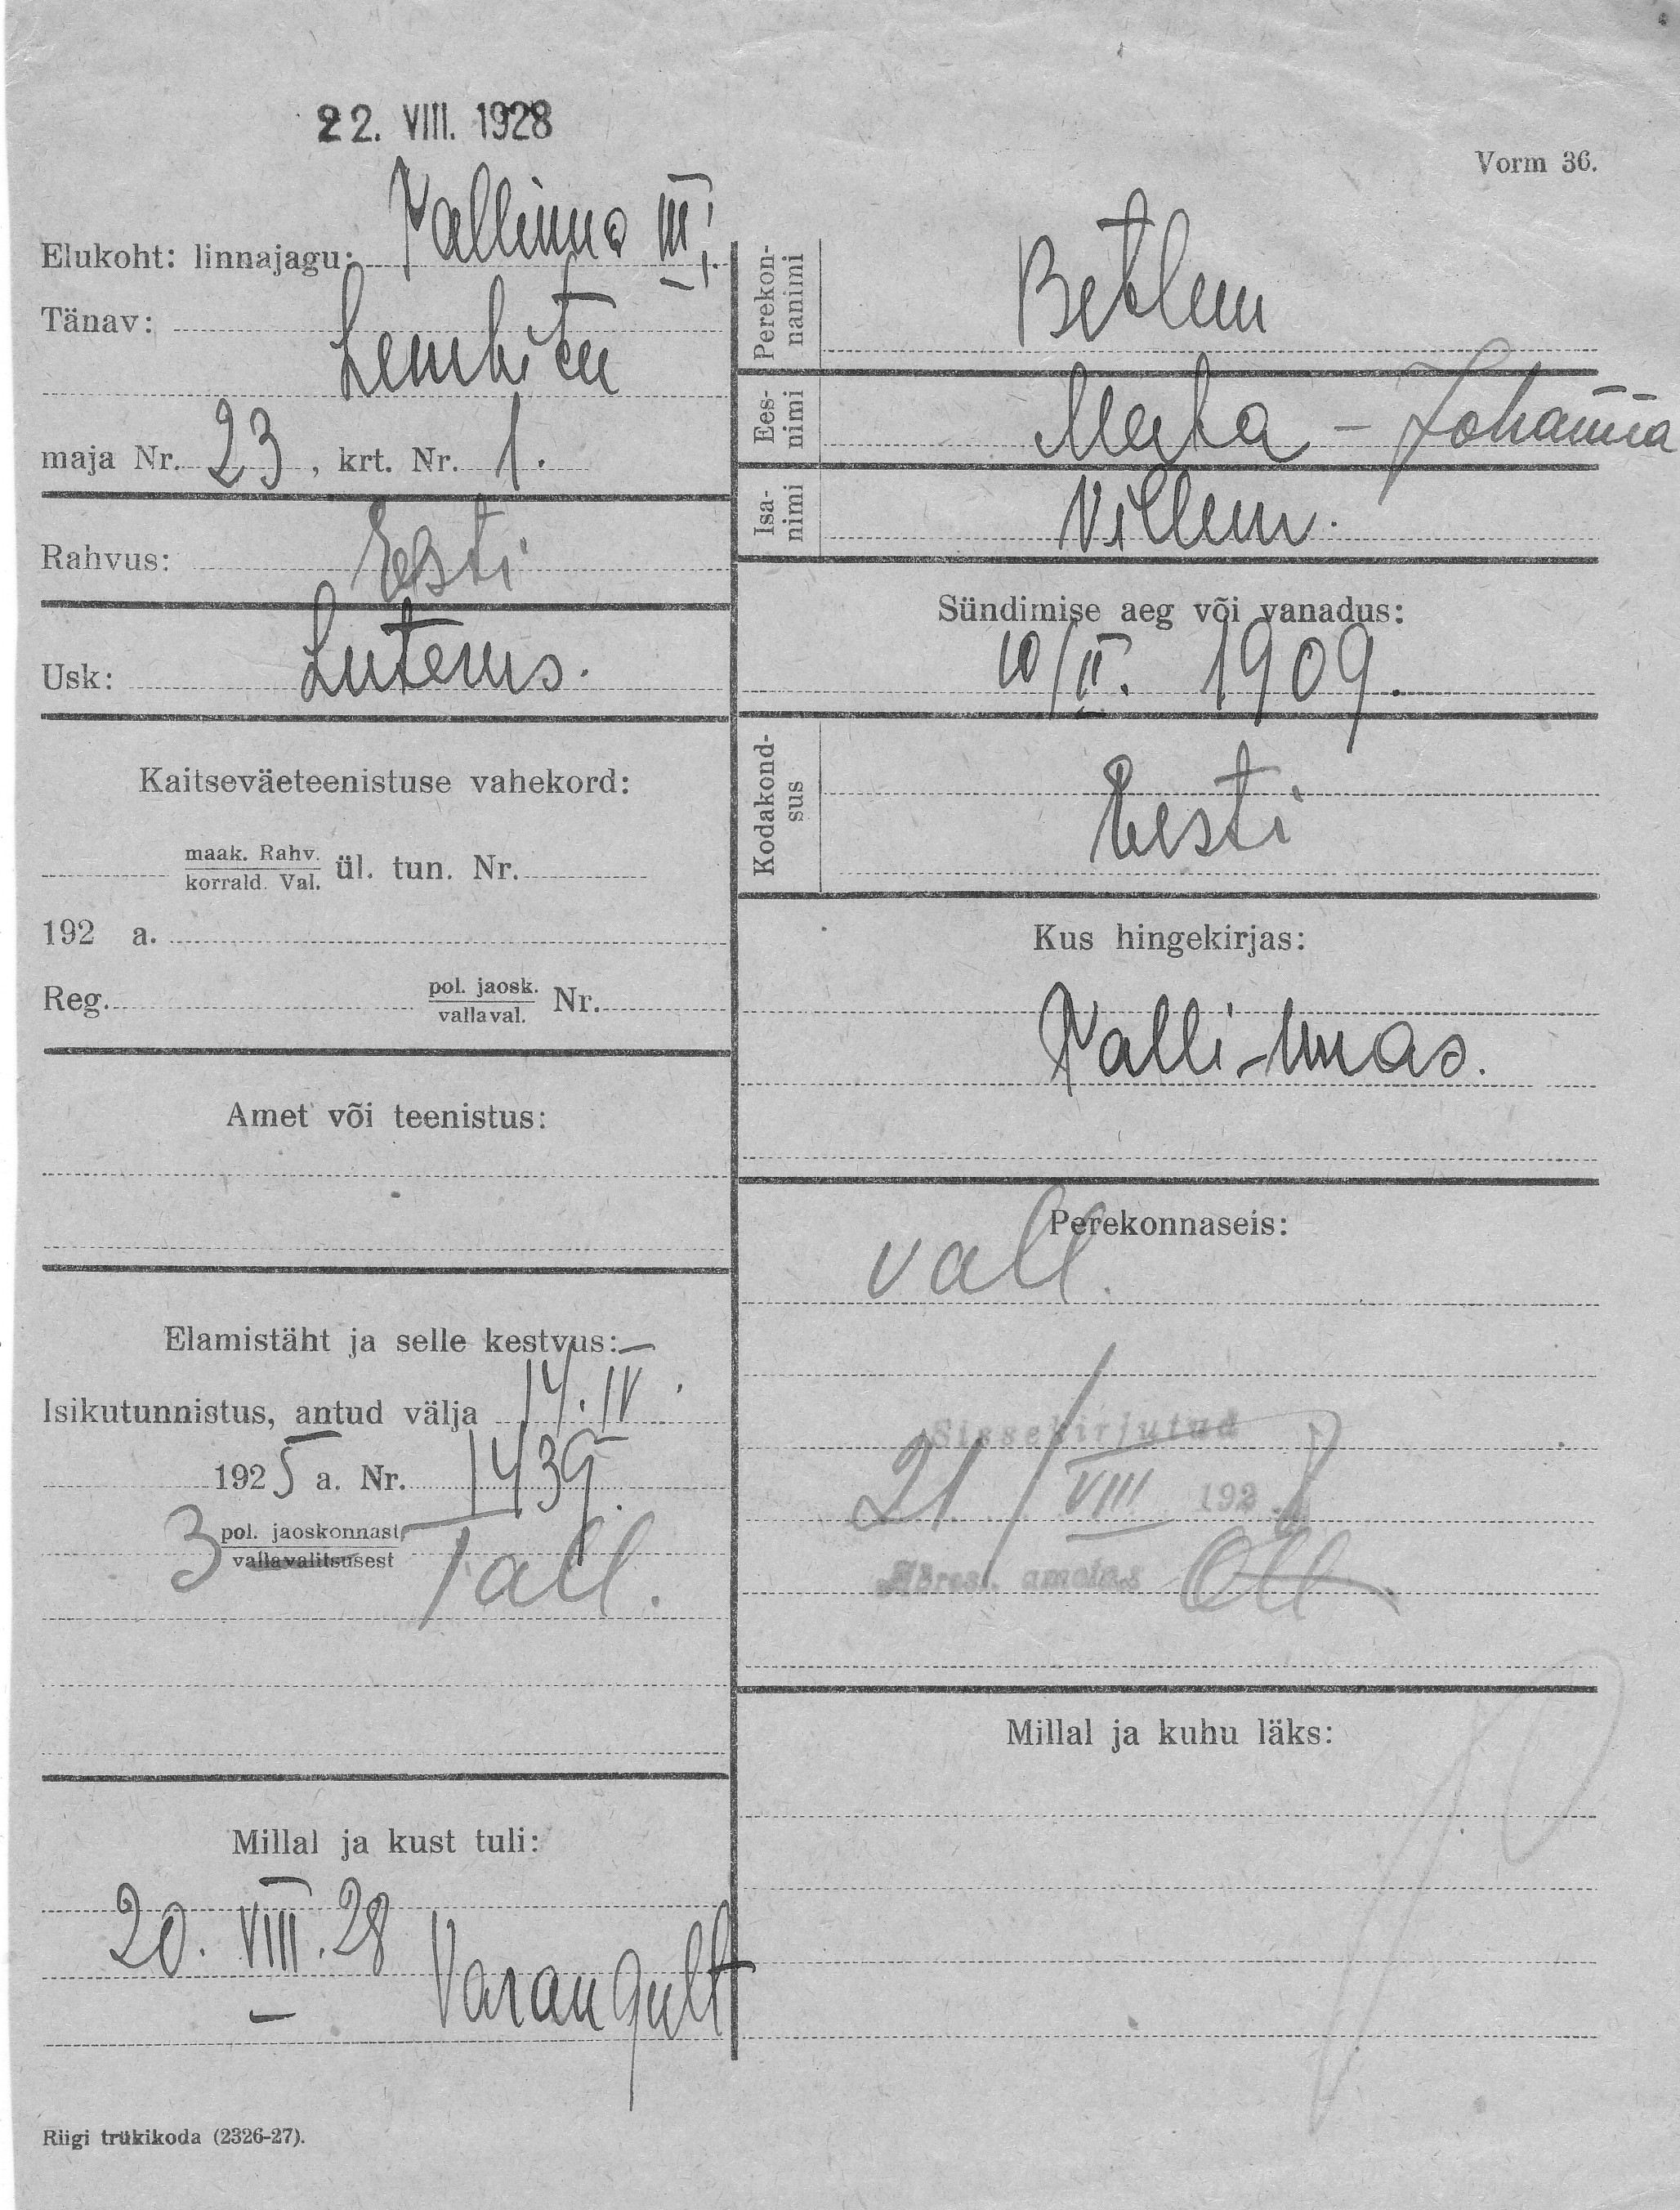 22. VIII. 1928
Vorm 36.
Elukoht: linnajagu: Tallinna III j.
Tänav:
Lembitu
maja Nr. 23, krt. Nr. 1.
Rahvus: Eesti
Usk: Luterus.
Kaitseväeteenistuse vahekord:
maak. Rahv.
korrald. Val. ül. tun. Nr.
192 a.
Reg. pol. jaosk.
vallaval. Nr.
Amet või teenistus:
Elamistäht ja selle kestvus: —
Isikutunnistus, antud välja 14. IV
1925 a. Nr. 1439.
3 pol. jaoskonnast
vallavalitsusest Tall.
Millal ja kust tuli:
20. VIII. 28 Varangult
Riigi trükikoda (2326-27).
Perekon-
nanimi
Betlem
Ees-
nimi
Meta - Johanna
Isa-
nimi
Villem.
Sündimise aeg või vanadus:
10/II. 1909.
Kodakond-
sus
Eesti
Kus hingekirjas:
Talli-nnas.
Perekonnaseis:
vall.
Sissekirjutud
21/VIII 1928
Adress. ametis
Millal ja kuhu läks: